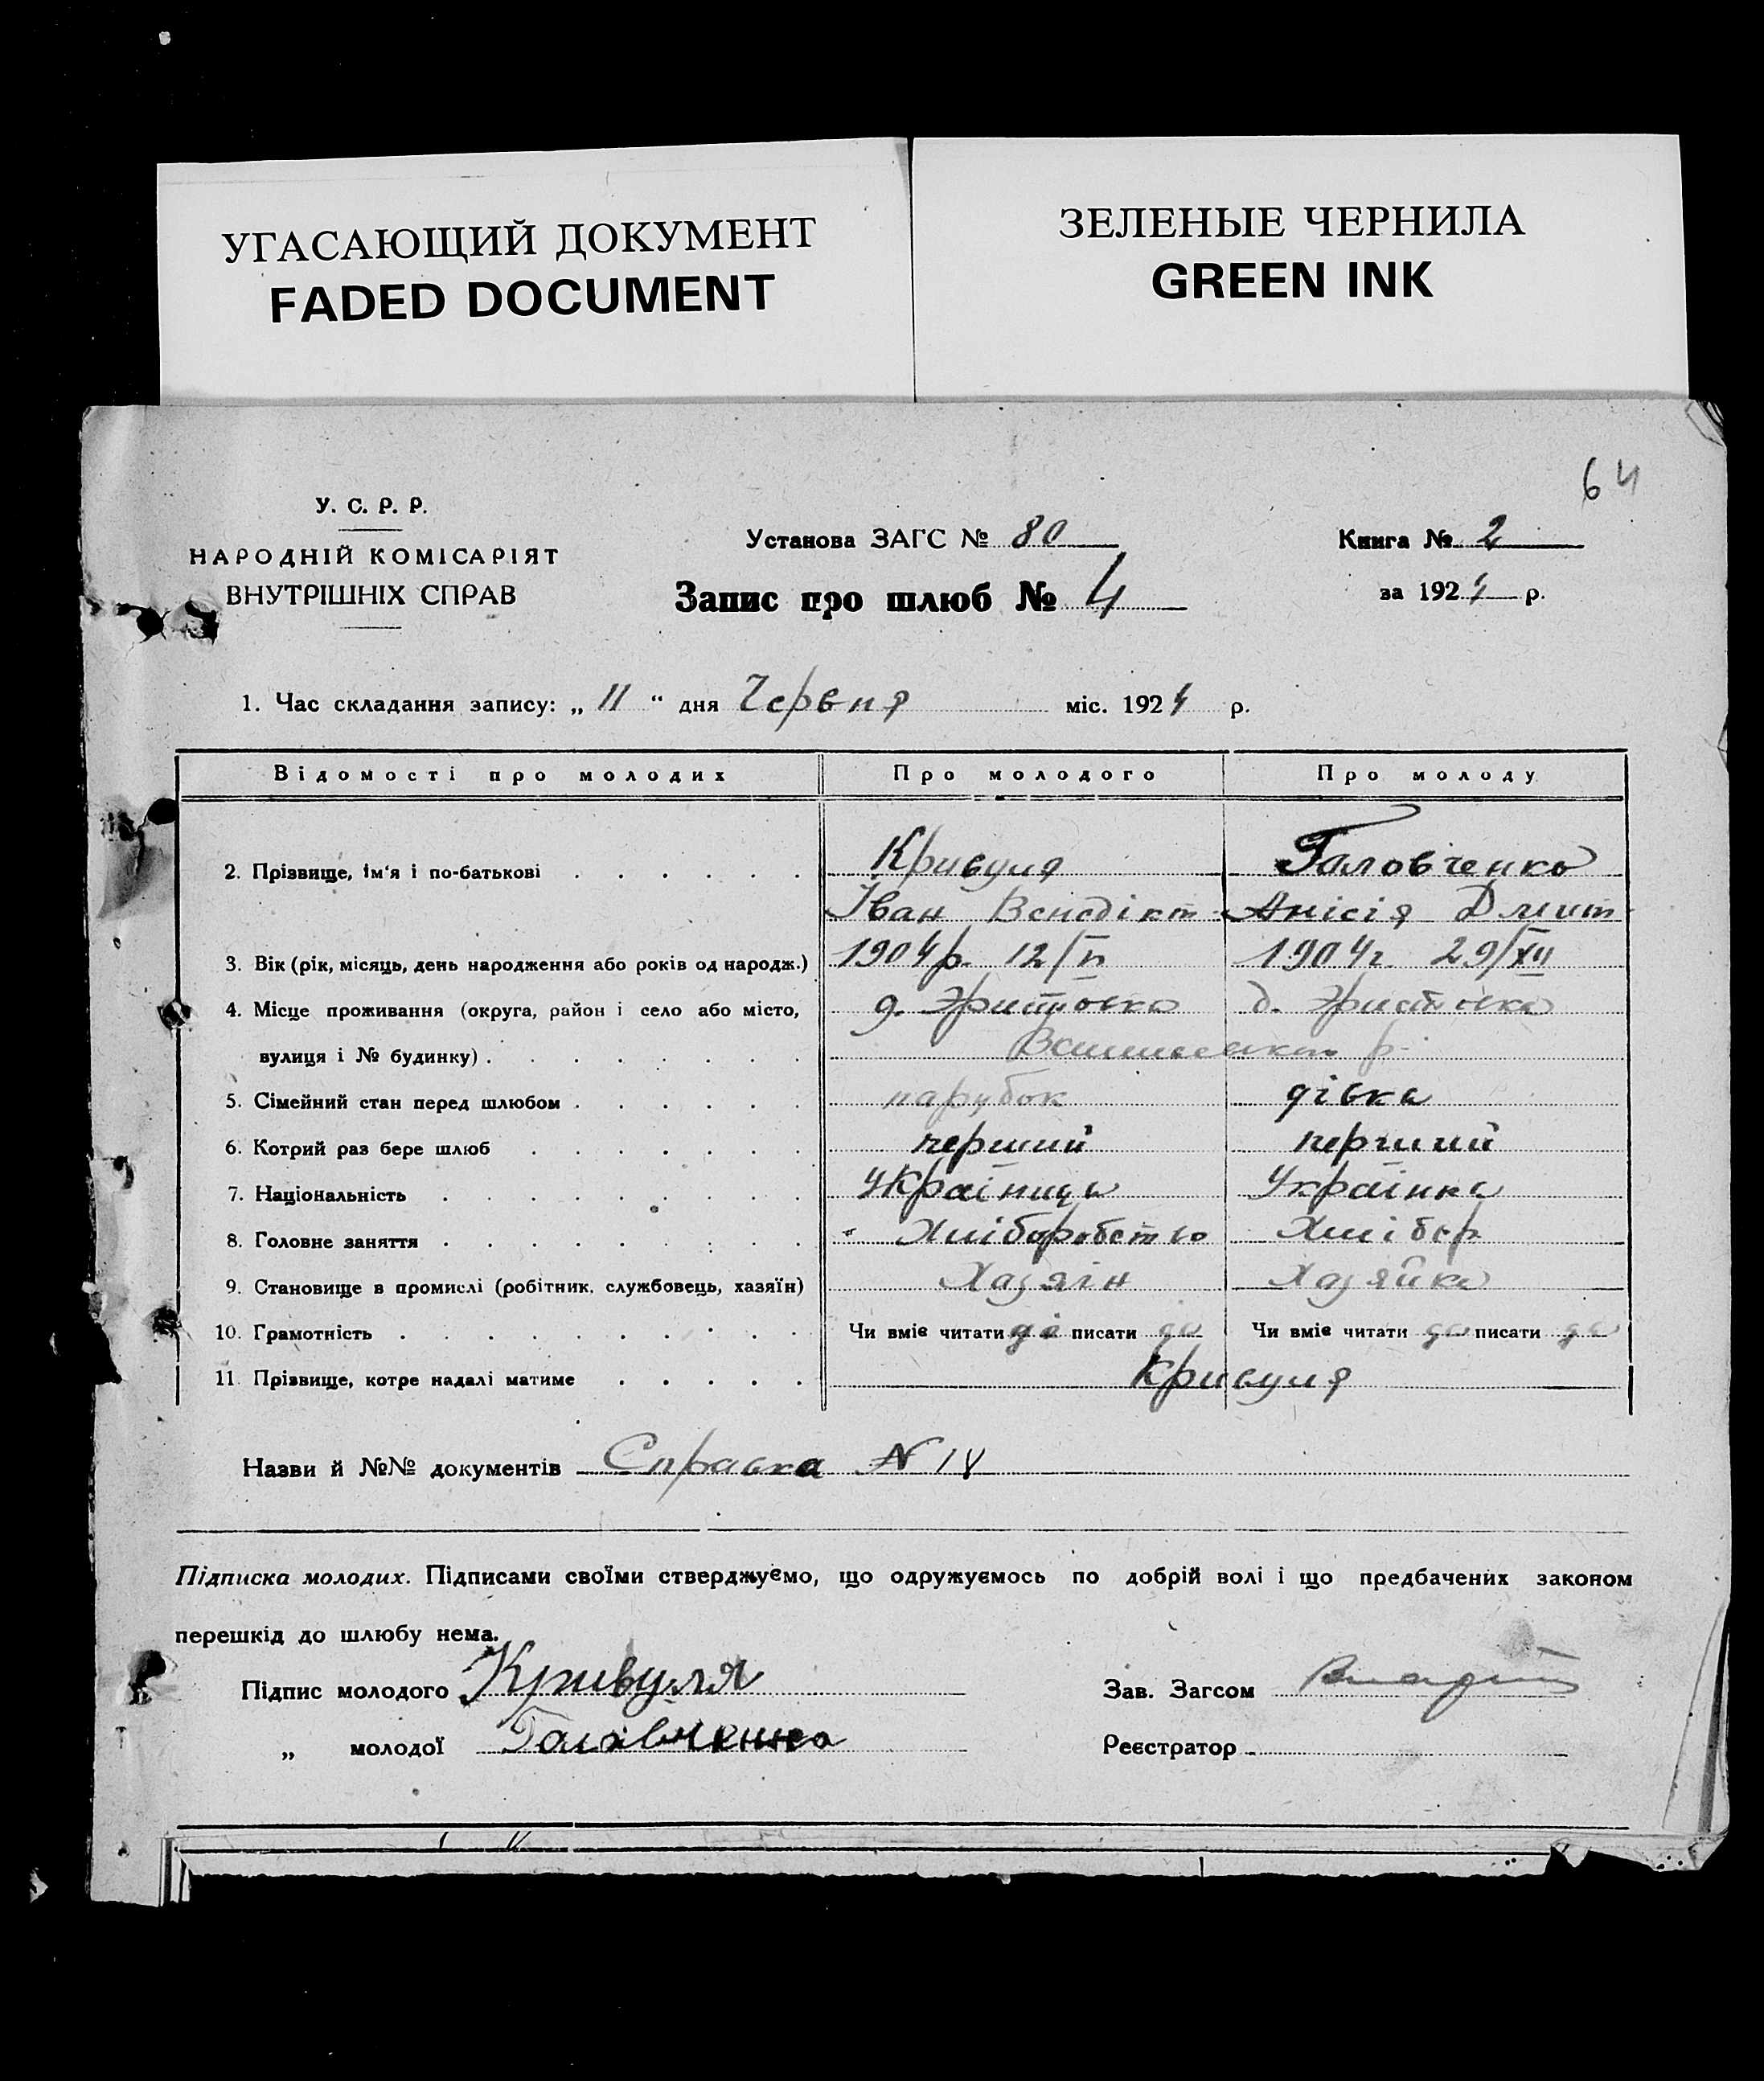 УГАСАЮЩИЙ ДОКУМЕНТ
FADED DOCUMENT
ЗЕЛЕНЫЕ ЧЕРНИЛА
GREEN INK
64
У. С. Р. Р.
НАРОДНІЙ КОМІСАРІЯТ
ВНУТРІШНІХ СПРАВ
Установа ЗАГС № 80
Запис про шлюб № 4
Книга № 2
за 1924 р.
1. Час складання запису: „ 11 “ дня Червня міс. 1924 р.
Відомості про молодих Про молодого Про молоду
2. Прізвище, ім'я і по-батькові Кривуля Галовченко
Іван Венедікт Анісія Дмит
3. Вік (рік, місяць, день народження або років од народж.) 1904р. 12/II 1904г. 29/XII
4. Місце проживання (округа, район і село або місто, д. Эристовка д. Эристовка
вулиця і № будинку) р.
5. Сімейний стан перед шлюбом парубок дівка
6. Котрий раз бере шлюб перший перший
7. Національність Україница Українка
8. Головне заняття Хліборобство Хлібор
9. Становище в промислі (робітник, службовець, хазяїн) Хазяін Хазяйка
10. Грамотність Чи вміє читати да писати да Чи вміє читати да писати да
11. Прізвище, котре надалі матиме Кривуля
Назви й №№ документів Справка N 18
Підписка молодих. Підписами своїми стверджуємо, що одружуємось по добрій волі і що предбачених законом
перешкід до шлюбу нема.
Підпис молодого Кривуля
Зав. Загсом
„ молодої Галавченко
Реєстратор